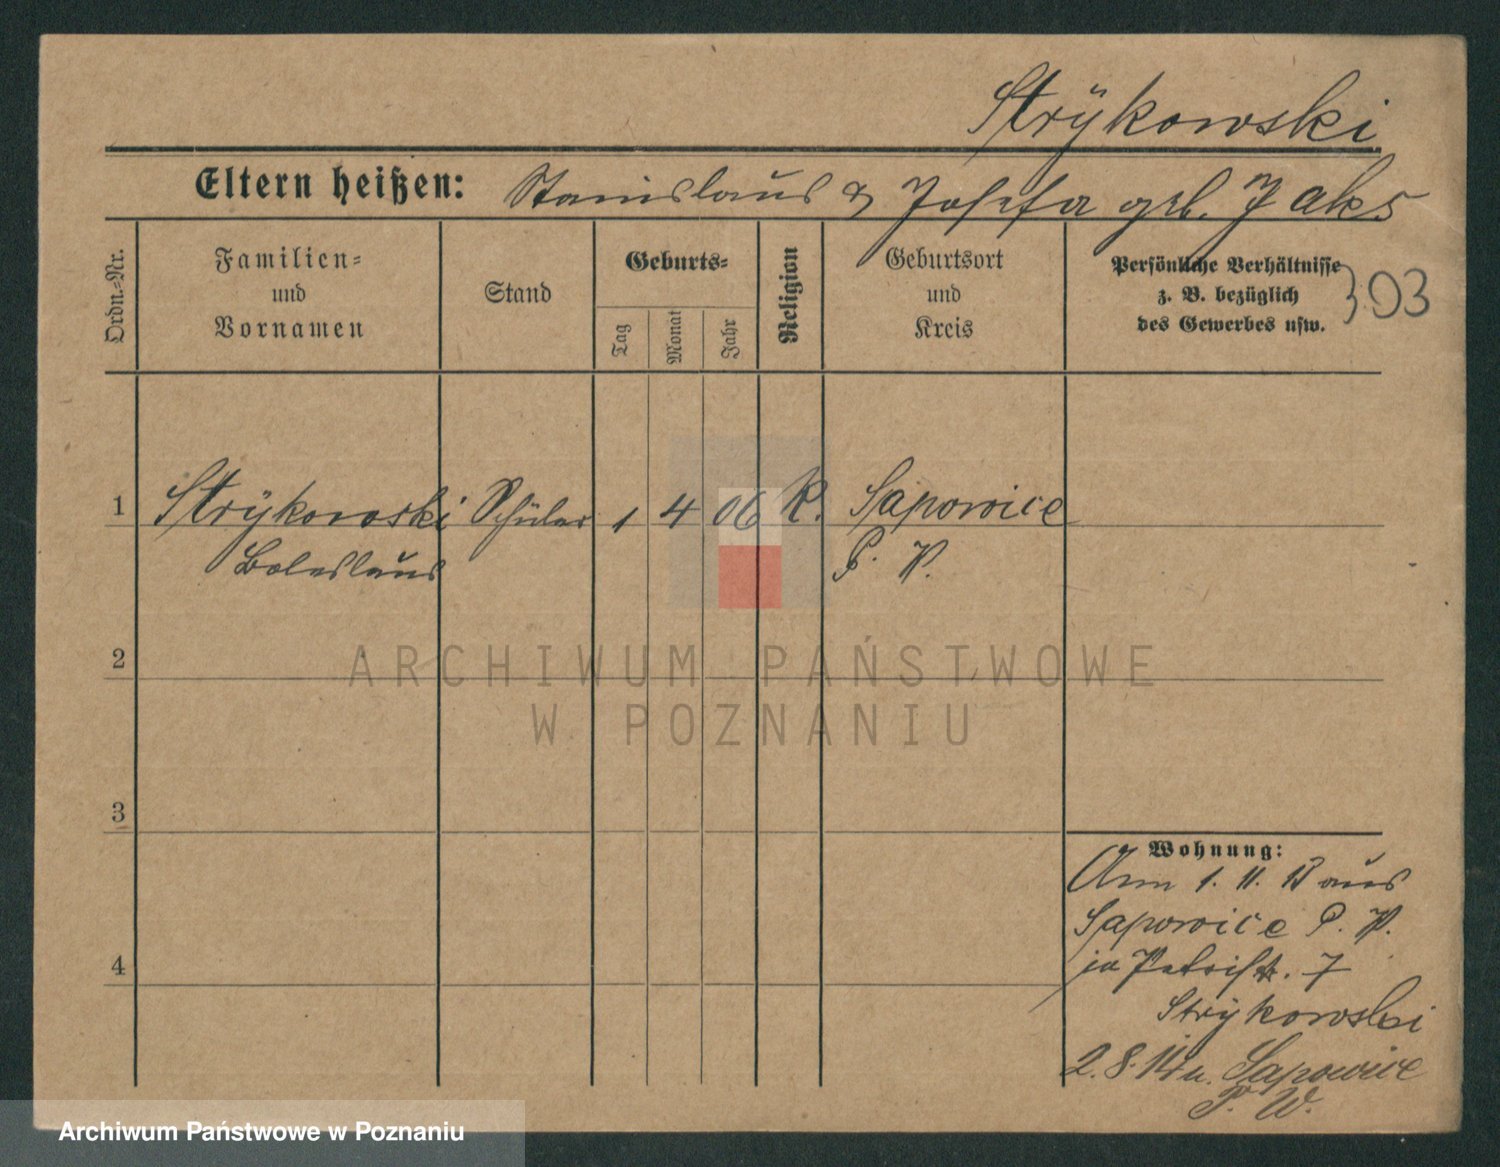 Strÿkowski
Eltern heißen: Stanislaus & Josefa geb. Jaks
Ordn.-Nr.
Familien-
und
Vornamen
Stand
Geburts-
Tag
Monat
Jahr
Religion
Geburtsort
und
Kreis
Persönliche Verhältnisse
z. B. bezüglich
des Gewerbes usw.
303
1 Strÿkowski Schüler 1 4 06 K. Sapowice
Boleslaus P. W.
2
3
4
Wohnung:
Am 1. 11. 13 aus
Sapowice P. W.
in Petristr. 7
Strÿkowski
2. 8. 14 n. Sapowice
P. W.
ARCHIWUM PAŃSTWOWE
W POZNANIU
Archiwum Państwowe w Poznaniu